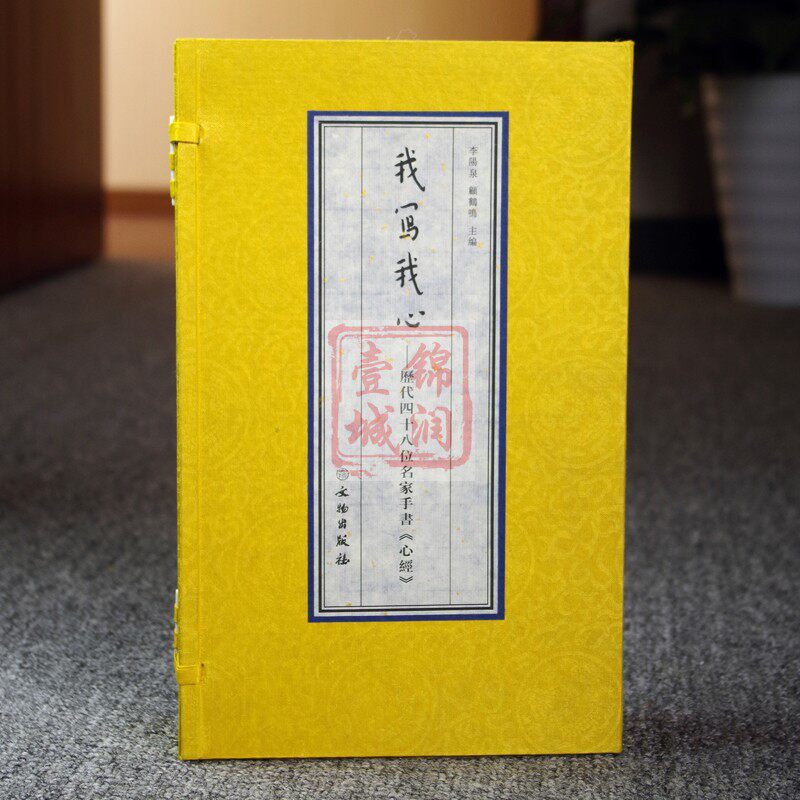 李陽泉 顧鶴鳴 主編
我寫我心
——歷代四十八位名家手書《心經》
文物出版社
錦润
壹城